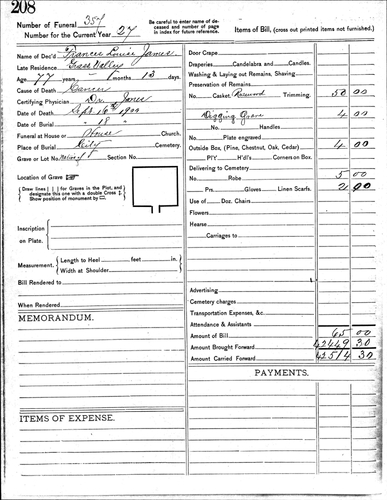 208
Number of Funeral 357
Number for the Current Year 27
Be careful to enter name of deceased and number of page in index for future reference.
Name of Dec'd Frances Louise James
Late Residence Grass Valley
Age, 77 years, - months 13 days.
Cause of Death Cancer
Certifying Physician Dr. Jones
Date of Death Sept 16th 1900
Date of Burial " 18 "
Funeral at House or House Church.
Place of Burial City Cemetery.
Grave or Lot No. Section No.
Location of Grave
Draw lines | | for Graves in the Plot, and designate this one with a double Cross
Show position of monument by
Inscription on Plate.
Measurement. Length to Heel feet in.
Width at Shoulder
Bill Rendered to
When Rendered
MEMORANDUM.
ITEMS OF EXPENSE.
Items of Bill, (cross out printed items not furnished.)
Door Crape
Draperies Candelabra and Candles.
Washing & Laying out Remains, Shaving
Preservation of Remains
No. Casket, Rosewood Trimming. 50 00
Digging Grave 4 00
No. Handles
No. Plate engraved
Outside Box, (Pine, Chestnut, Oak, Cedar) 4 00
PlY H'dl's Corners on Box.
Delivering to Cemetery
No. Robe 5 00
Prs. Gloves Linen Scarfs. 2 00
Use of Doz. Chairs
Flowers
Hearse
Carriages to
Advertising
Cemetery charges
Transportation Expenses, &c
Attendance & Assistants
Amount of Bill 65 00
Amount Brought Forward 42449 30
Amount Carried Forward 42514 30
PAYMENTS.